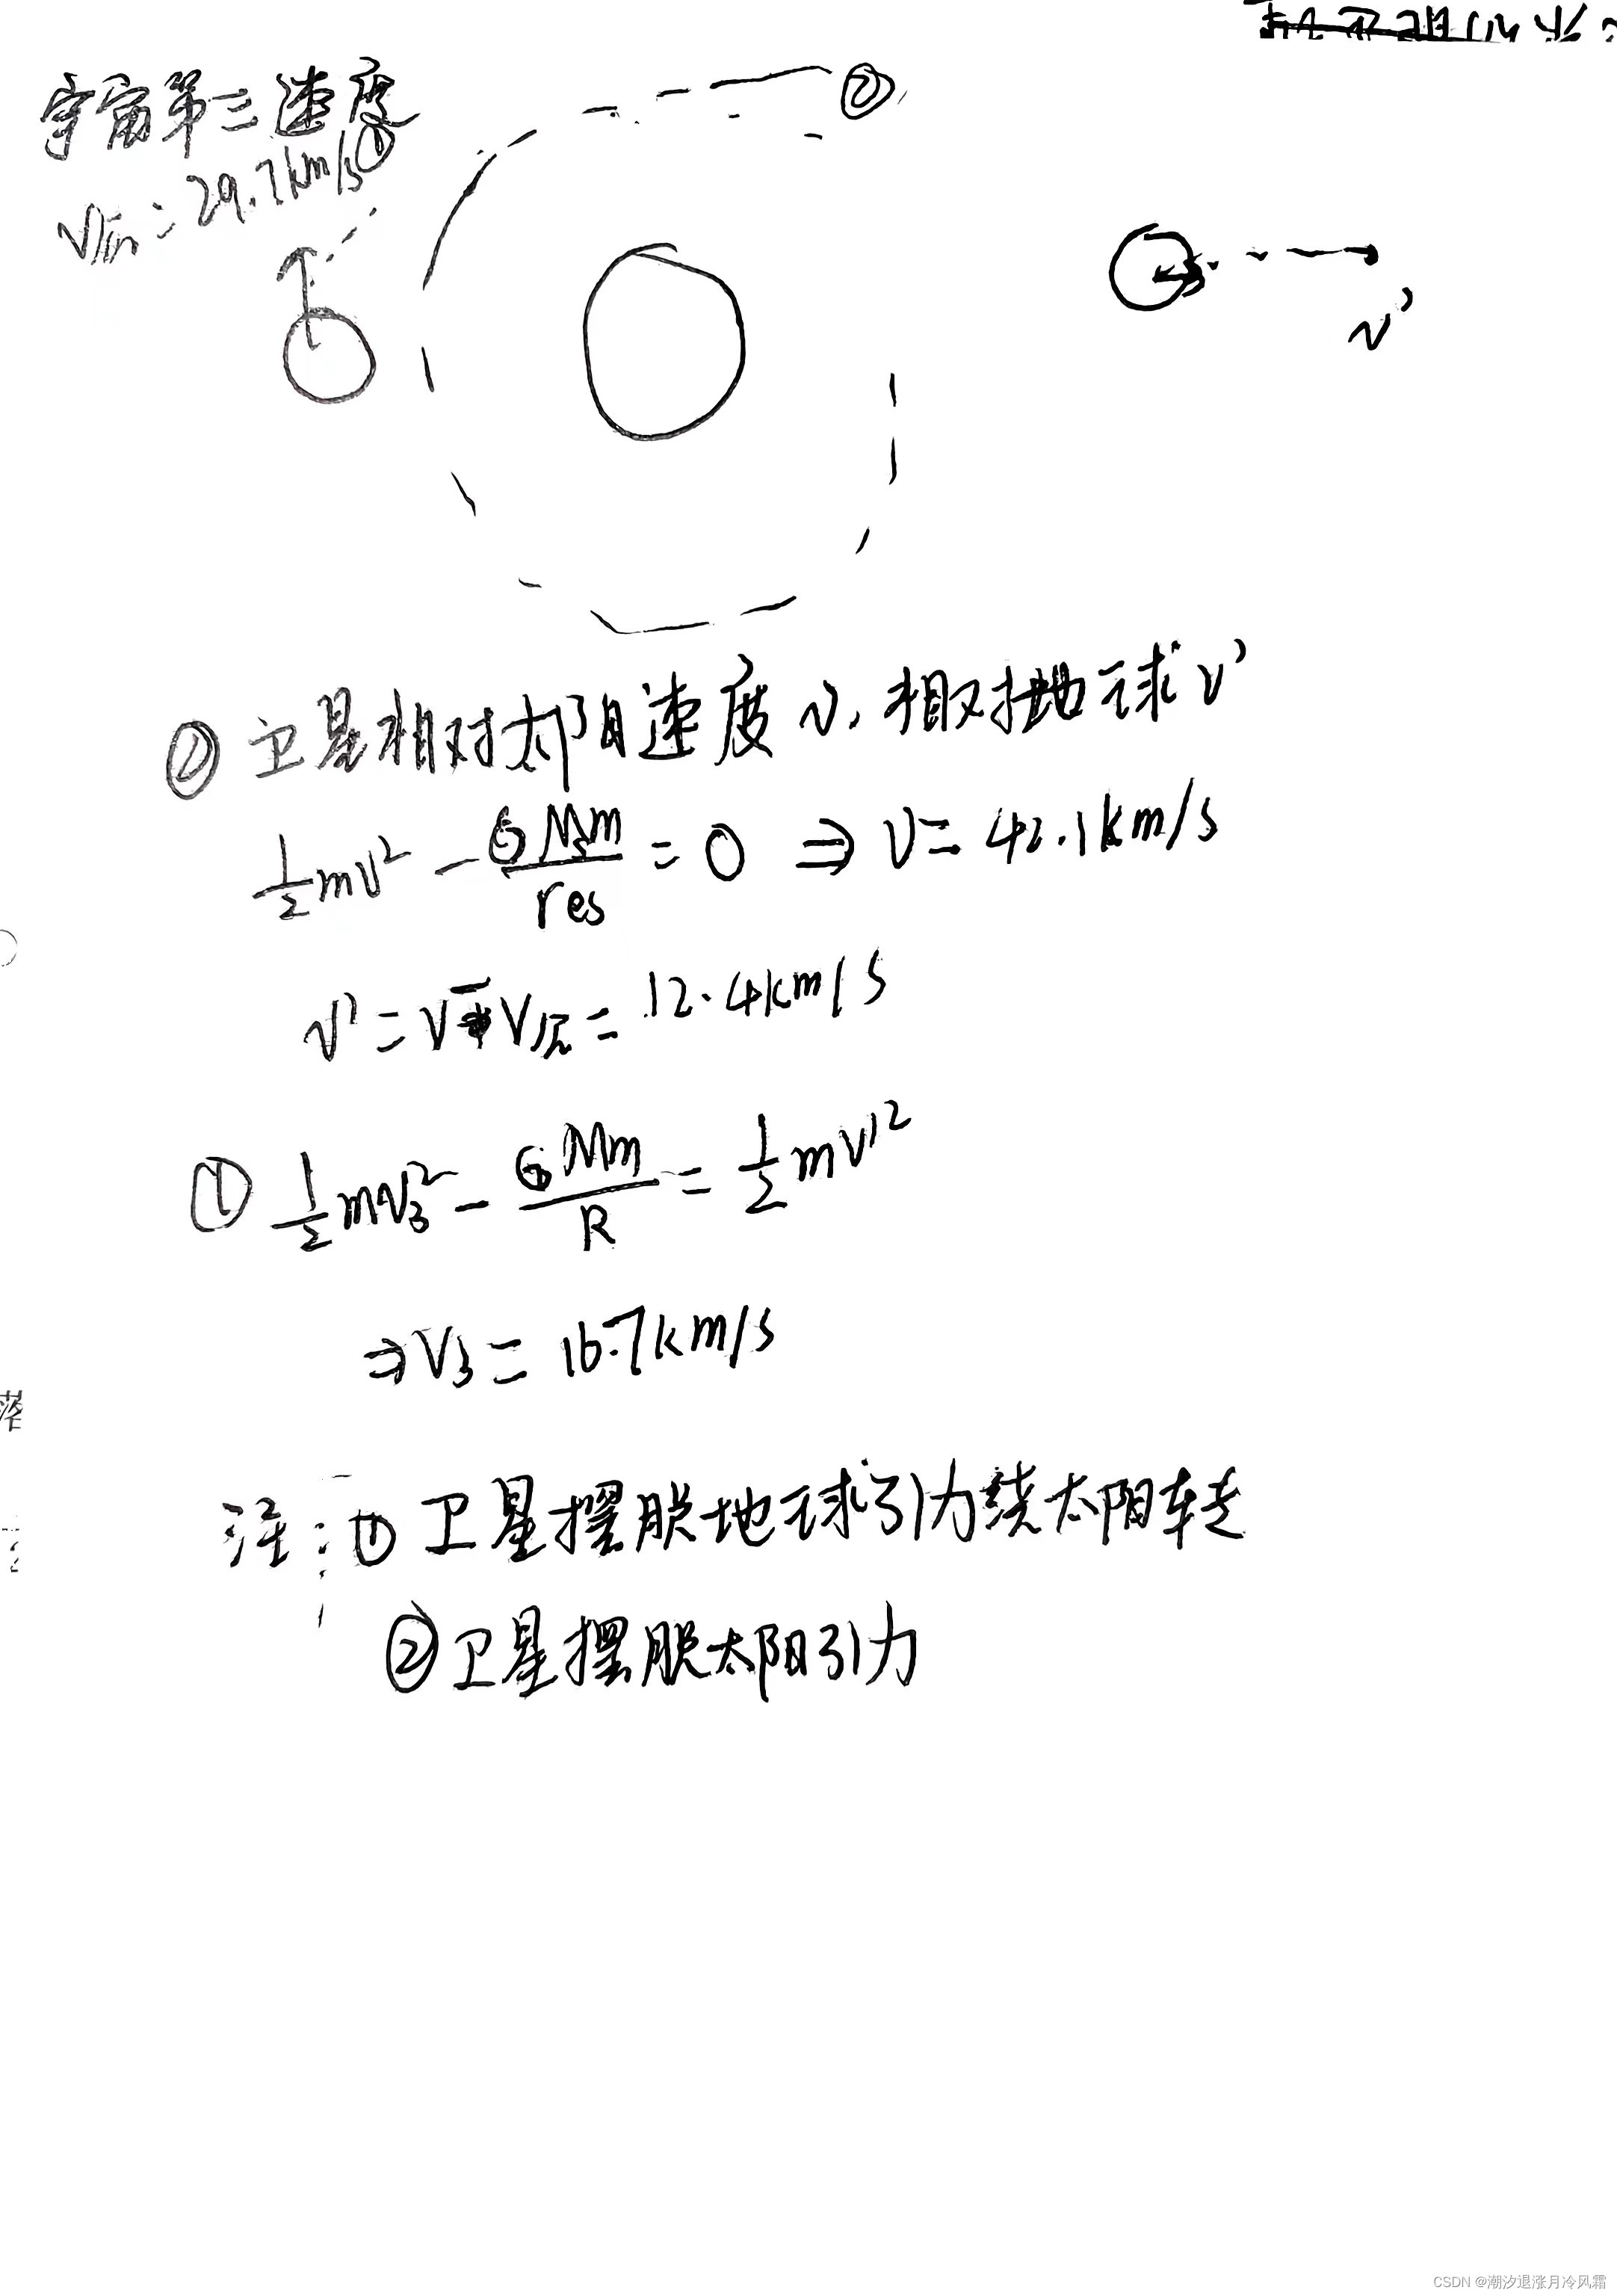 宇宙第三速度
= 29.7km/s ①
②
v'
② 卫星相对太阳速度 v, 相对地球 v'
½mv² - GMsm/res = 0 ⇒ v = 42.1km/s
v' = v - v = 12.4km/s
① ½mv₃² - GMm/R = ½mv'²
⇒ v₃ = 16.7km/s
注: ① 卫星摆脱地球引力绕太阳转走
② 卫星摆脱太阳引力
CSDN @潮汐退涨月冷风霜